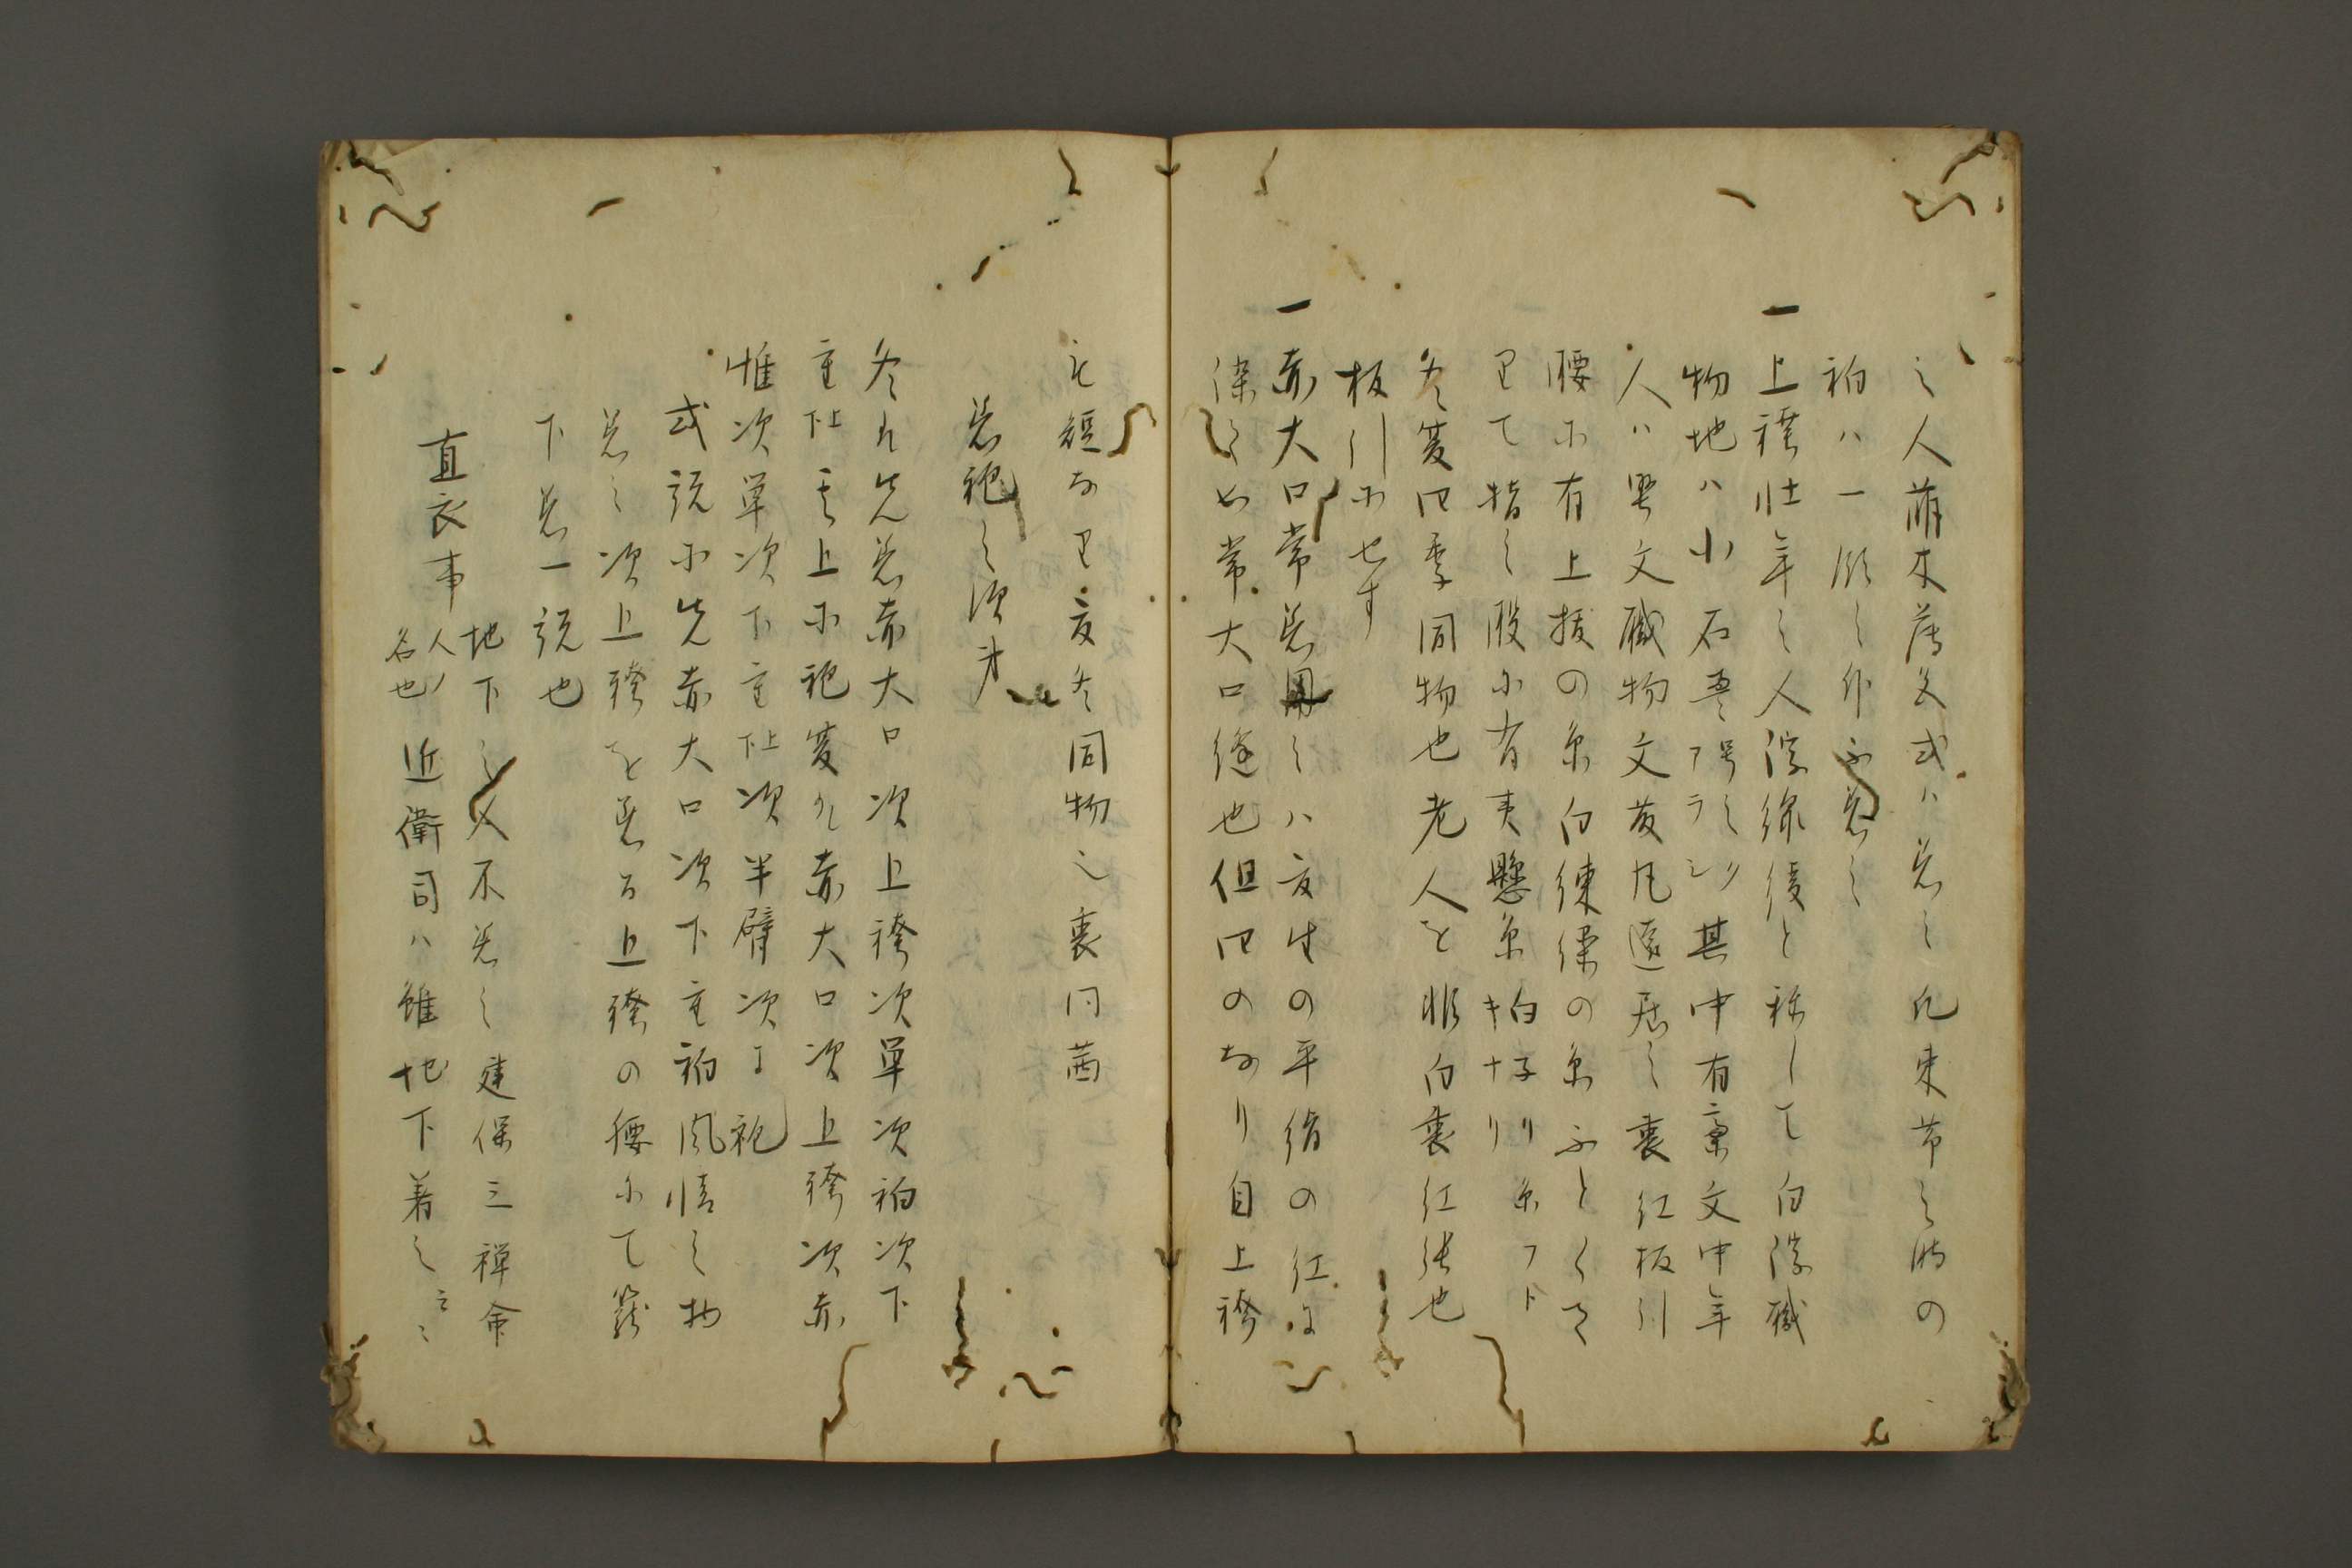 之人萠木薄色或ハ着之凡束帯之時の
袙ハ一領之外不着之
一上袴壮年之人浮線綾と称して白浮織
物地ハ小石畳アラレト号之其中有窠文中年
人ハ堅文織物文藤丸遠居之裏紅板引
腰ニ有上抜の糸白練繰の糸ふとくて
里て指之股ニ有夷懸糸白子リ糸フト
冬夏四季同物也老人を唯白裏紅張也
板引ニせす
一赤大口常着用之ハ夏生の平絹の紅に
染之如常大口縫也但四のなり自上袴
も短なり夏冬同物之裏同茜
着袍之次第
冬ハ先着赤大口次上袴次単次袙次下
重其上ニ袍夏ハ赤大口次上袴次赤
帷次単次下重次半臂次に袍
或説ニ先赤大口次下重袙風情之物
着之次上袴を着る上袴の腰ニて籠
下着一説也
直衣事 地下之人不着之建保三禅命
人ノ名也 近衛司ハ雖地下着之云々